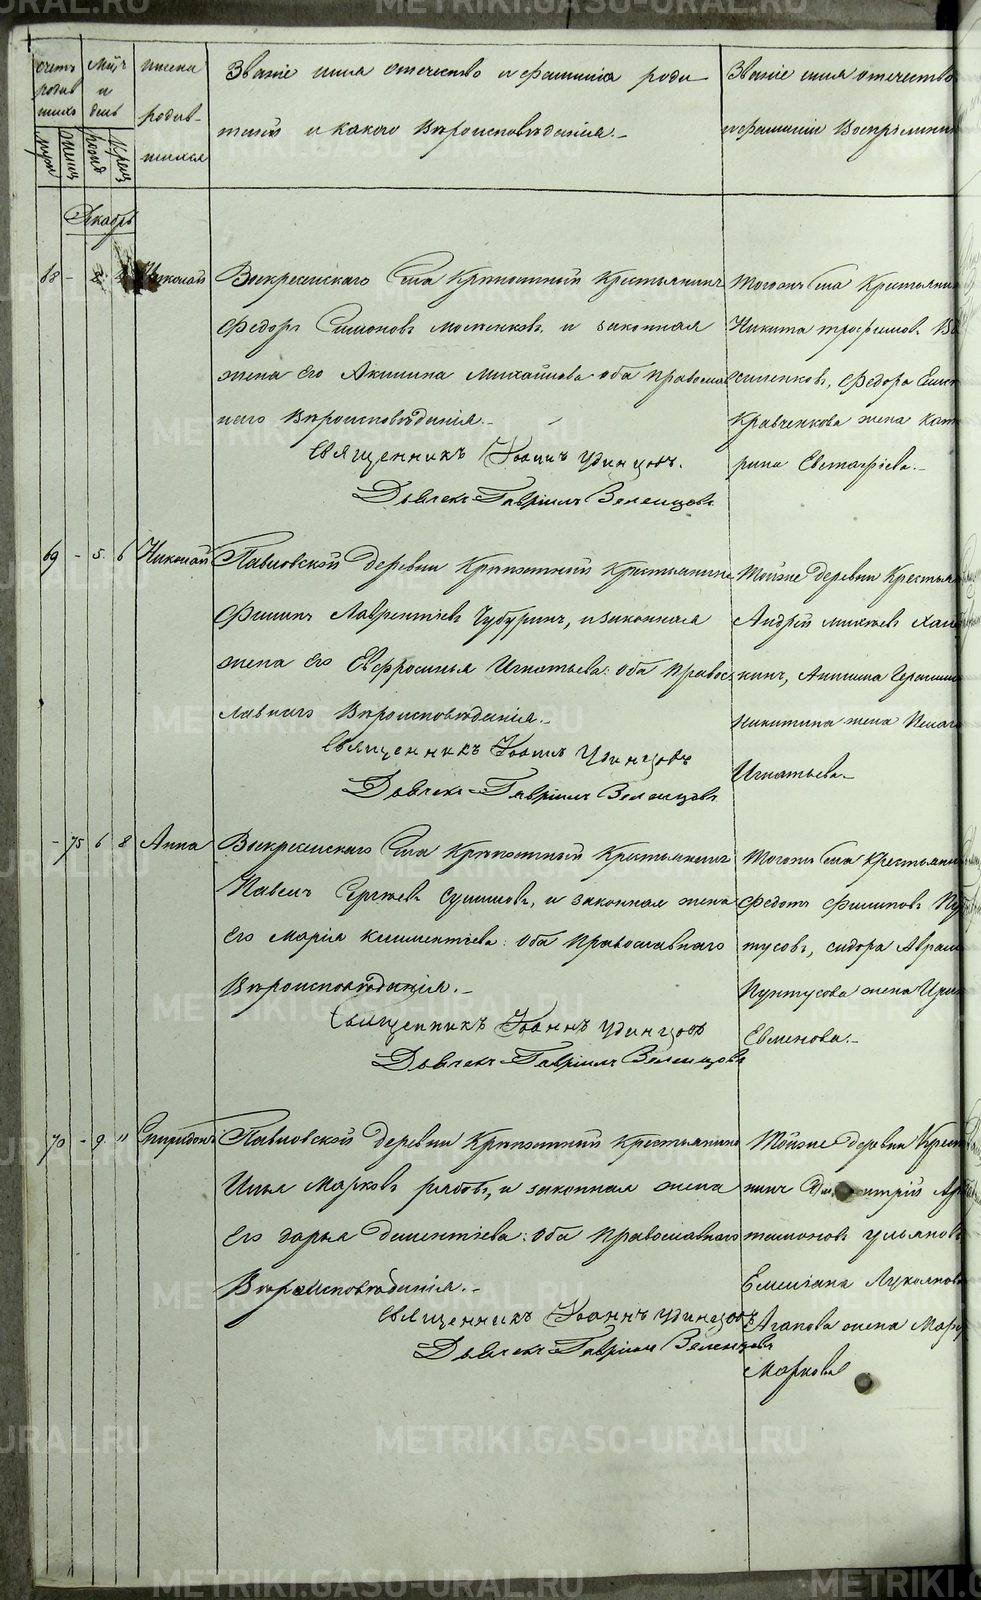 METRIKI.GASO-URAL.RU
счетъ родив шихъ
Мцъ и день
имена родив- шихся
Званіе имя отечество и фамилія роди телей и какого Вѣроисповѣданія.-
Званіе имя отечество и фамилія Воспріемник
муж
женс
рожд
крещ
Декабрь
68 -
Николай
Воскресенскаго Села Крѣпостный Крестьянинъ
Федоръ Симоновъ и законная
жена его Акилина Михайлова оба Правосла
наго Вѣроисповѣданія.-
Священникъ Іоаннъ Удинцовъ.
Дьячекъ Гавріилъ Зеленцовъ
Тогожъ Села Крестьянин
Никита трофимовъ
Федора
Кравченкова жена Кате
рина Евстафіева.-
69 - 5. 6 Николай
Павловской деревни Крѣпостный Крестьянинъ
Филипъ Лаврентіевъ Чубуринъ, и законная
жена его Евфросинья Игнатьева: оба Правос
лавнаго Вѣроисповѣданія.-
Священникъ Іоаннъ Удинцовъ
Дьячекъ Гавріилъ Зеленцовъ
Тойже деревни Крестьян
Андрей
никитина жена Пелаге
Игнатьева.-
- 75 6 8 Анна
Воскресенскаго Села Крѣпостный Крестьянинъ
Павелъ Сергѣевъ и законная жена
его Марія Климентіева: оба Православнаго
Вѣроисповѣданія.-
Священникъ Іоаннъ Удинцовъ
Дьячекъ Гавріилъ Зеленцовъ
Тогожъ Села Крестьянин
Федотъ Филиповъ Пу
тусовъ, сидора Аврам
Пунтусова жена Ирин
Евменова.-
70 - 9. 11 Спиридонъ
Павловской деревни Крѣпостный Крестьянинъ
Илья Марковъ рябовъ, и законная жена
его дарья дементіева: оба Православнаго
Вѣроисповѣданія.-
Священникъ Іоаннъ Удинцовъ
Дьячекъ Гавріилъ Зеленцовъ
Тойже деревни Крестья
нинъ Димитрій Ар
тамоновъ ульяновъ
Емельяна Лукоянова
Агапова жена Марф
Маркова